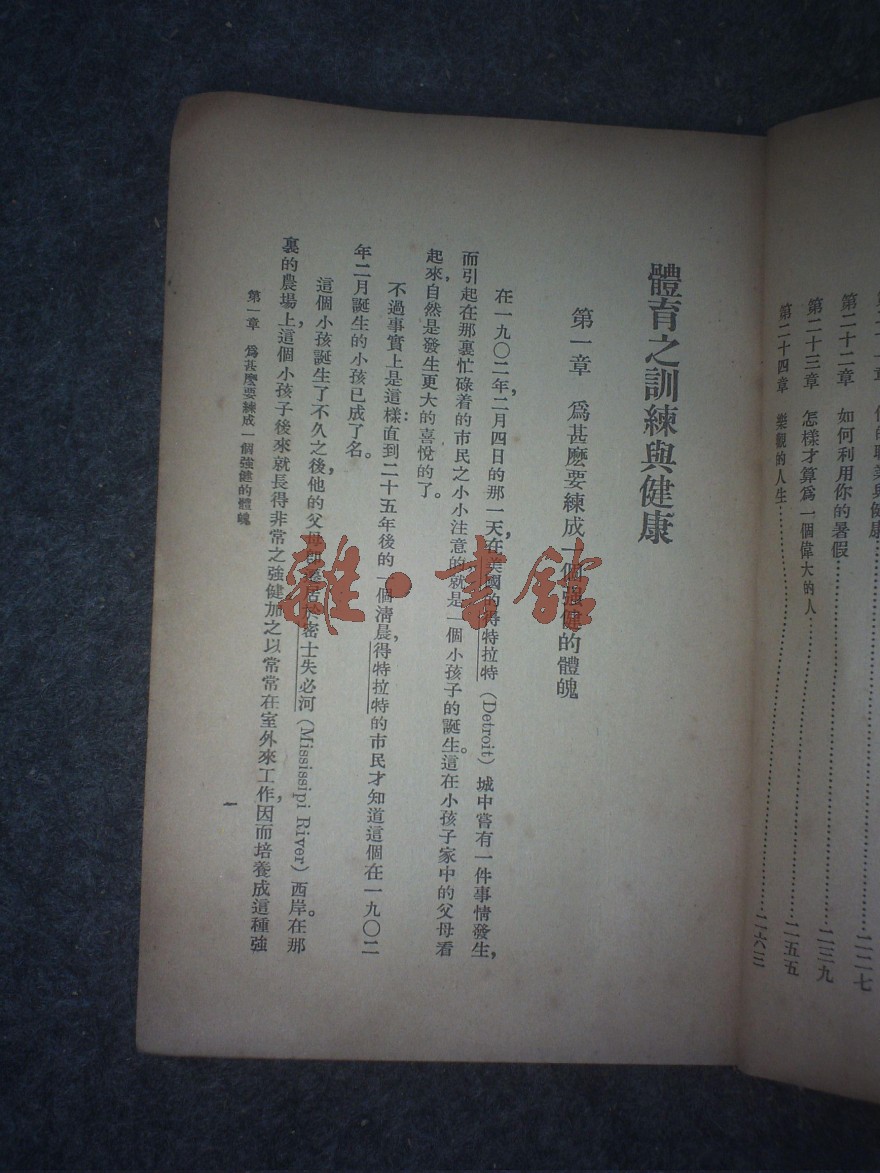 第二十二章　如何利用你的暑假……二二七
第二十三章　怎樣才算爲一個偉大的人……二三九
第二十四章　樂觀的人生……二五五
二六三
體育之訓練與健康
第一章　爲甚麽要練成一個強健的體魄
在一九〇二年二月四日的那一天，在美國的得特拉特（Detroit）城中嘗有一件事情發生，
而引起在那裏忙碌着的市民之小小注意的就是一個小孩子的誕生。這在小孩子家中的父母看
起來，自然是發生更大的喜悅的了。
不過事實上是這樣：直到二十五年後的一個淸晨，得特拉特的市民才知道這個在一九〇二
年二月誕生的小孩已成了名。
這個小孩誕生了不久之後，他的父母卽遷居於密士失必河（Mississipi River）西岸。在那
裏的農場上，這個小孩子後來就長得非常之強健，加之以常常在室外來工作，因而培養成這種強
第一章　爲甚麽要練成一個強健的體魄
一
雜·書館